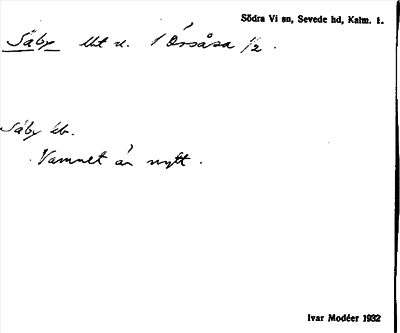 Södra Vi sn, Sevede hd, Kalm. l.
Säby lht u. 1 Örsåsa 1/2.
Säby lb.
Namnet är nytt.
Ivar Modéer 1932